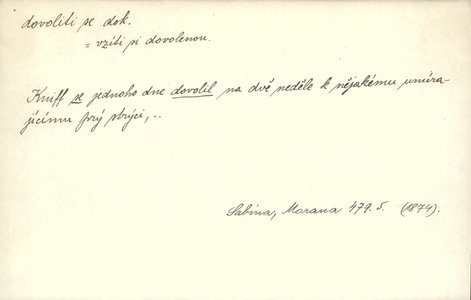 dovoliti se dok.
= vzíti si dovolenou.
Kniff se jednoho dne dovolil na dvě neděle k nějakému umíra-
jícímu prý strýci,..
Sabina, Morana 479.5. (1874).